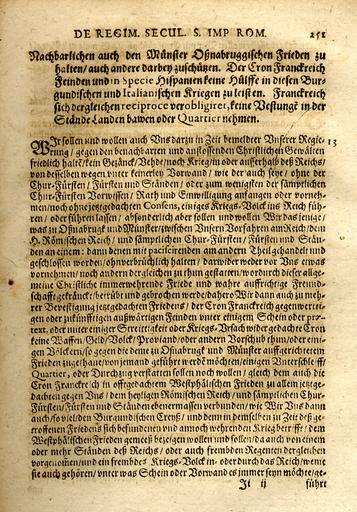 DE REGIM. SECUL. S. IMP ROM. 251
Nachbarlichen auch den Münster Oßnabruggischen Frieden zu
halten/ auch andere darbey zuschützen. Der Cron Franckreich
Feinden und in specie Hispanien keine Hülffe in diesen Bur
gundischen und Italianischen Kriegen zu leisten. Franckreich
sich dergleichen reciproce verobligiret, keine Vestung in der
Stände Landen bawen oder Quartier nehmen.
WIr sollen und wollen auch Uns darzu in Zeit bemeldter Unserer Regie- 13
rung/ gegen den benachbarten und anstossenden Christlichen Gewälten
friedlich halten/ kein Gezänck/ Vehde/ noch Krieg/ in oder ausserhalb deß Reichs/
von desselben wegen unter keinerley Vorwand/ wie der auch seye/ ohne der
Chur-Fürsten/ Fürsten und Ständen/ oder zum wenigsten der sämptlichen
Chur-Fürsten Vorwissen/ Rath und Einwilligung anfangen oder vorneh-
men/ noch ohne jetzgedachten Consens, einiges Kriegs-Volck ins Reich füh-
ren/ oder führen lassen/ absonderlich aber sollen und wollen Wir das jenige/
was zu Oßnabrugk und Münster/ zwischen Unsern Vorfahren am Reich/ dem
H. Römischen Reich/ und sämptlichen Chur-Fürsten/ Fürsten und Stän-
den an einem: dann denen mit pacisciren den am andern Theil gehandelt und
geschlossen worden/ ohnverbrüchlich halten/ darwider weder vor Uns etwas
vornehmen/ noch andern dergleichen zu thun gestatten/ wordurch dieser allge-
meine Christliche immerwehrende Friede und wahre auffrichtige Freund-
schafft gekränckt/ betrübt und gebrochen werde/ dahero Wir dann auch zu meh-
rer Bevestigung jetzgedachten Friedens/ der Cron Franckreich gegenwerti-
gen oder zukünfftigen außwärtigen Feinden unter einigem Schein oder præ-
text, oder unter einiger Streitigkeit oder Kriegs-Ursach wider gedachte Cron
keine Waffen/ Geld/ Volck/ Proviand/ oder andern Vorschub thun/ oder eini-
gen Völckern/ so gegen die denen zu Oßnabrugk und Münster auffgerichteten
Frieden zugethane/ von jemand geführt werden möchten/ einigen Unterschleiff/
Quartier, oder Durchzug verstatten sollen noch wollen/ gleich dem auch die
Cron Franckreich in offtgedachtem Westphälischen Frieden zu allem jetzge-
dachten gegen Uns/ dem heyligen Römischen Reich/ und sämptlichen Chur-
Fürsten/ Fürsten und Ständen ebenermassen verbunden/ wie Wir Uns dann
auch/ so viel den Burgundischen Creyß/ und denn in demselben zu Zeit deß ge-
troffenen Friedens sich befundenen und annoch wehrenden Krieg betrifft/ dem
Westphälischen Frieden gemeeß bezeigen wollen und sollen/ da auch von einem
oder mehr Ständen deß Reichs/ oder auch frembden Regenten dergleichen
vorgenommen/ und ein frembdes Kriegs-Volck in- oder durch das Reich/ wem
sie auch gehören/ unter was Schein oder Vorwand es immer seyn möchte/ ge-
Ji ij führte